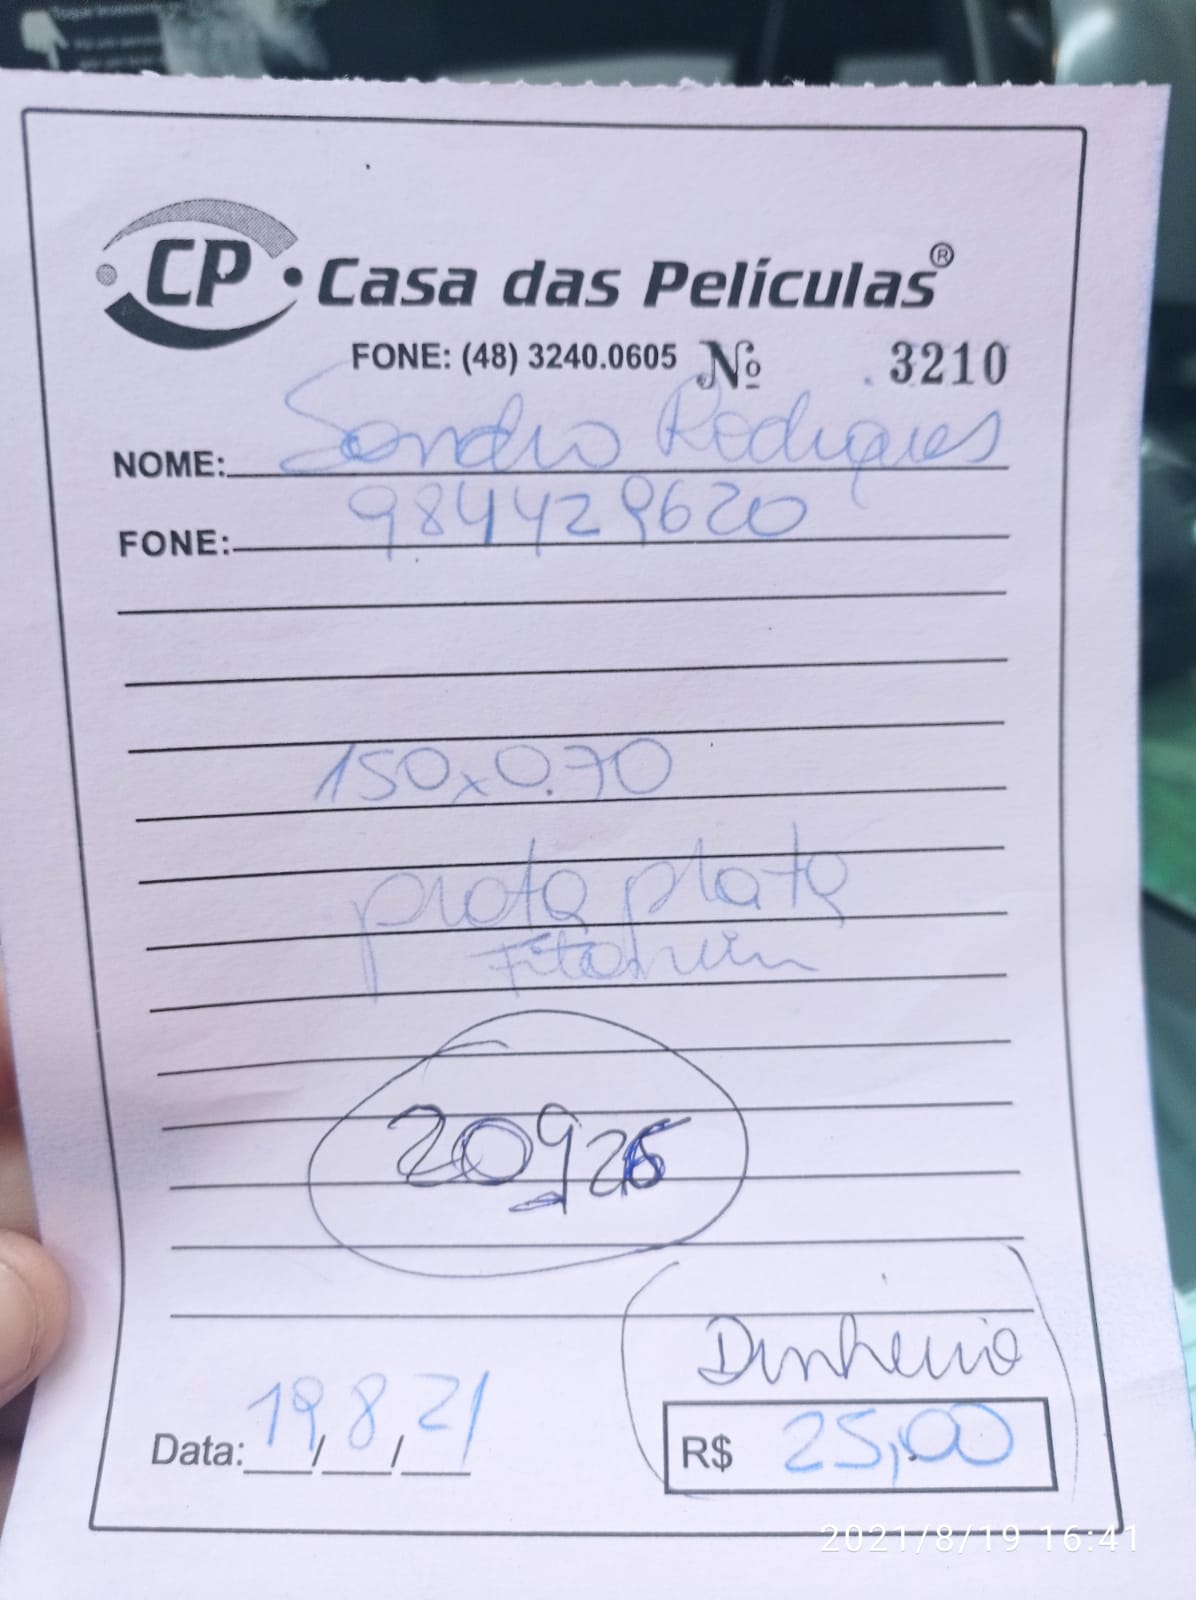 CP Casa das Películas®
FONE: (48) 3240.0605 Nº 3210
NOME: Sandro Rodrigues
FONE: 984429620
150x0.70
preta prata
Titanium
20926
Dinheiro
Data: 19/8/21 R$ 25,00
2021/8/19 16:41